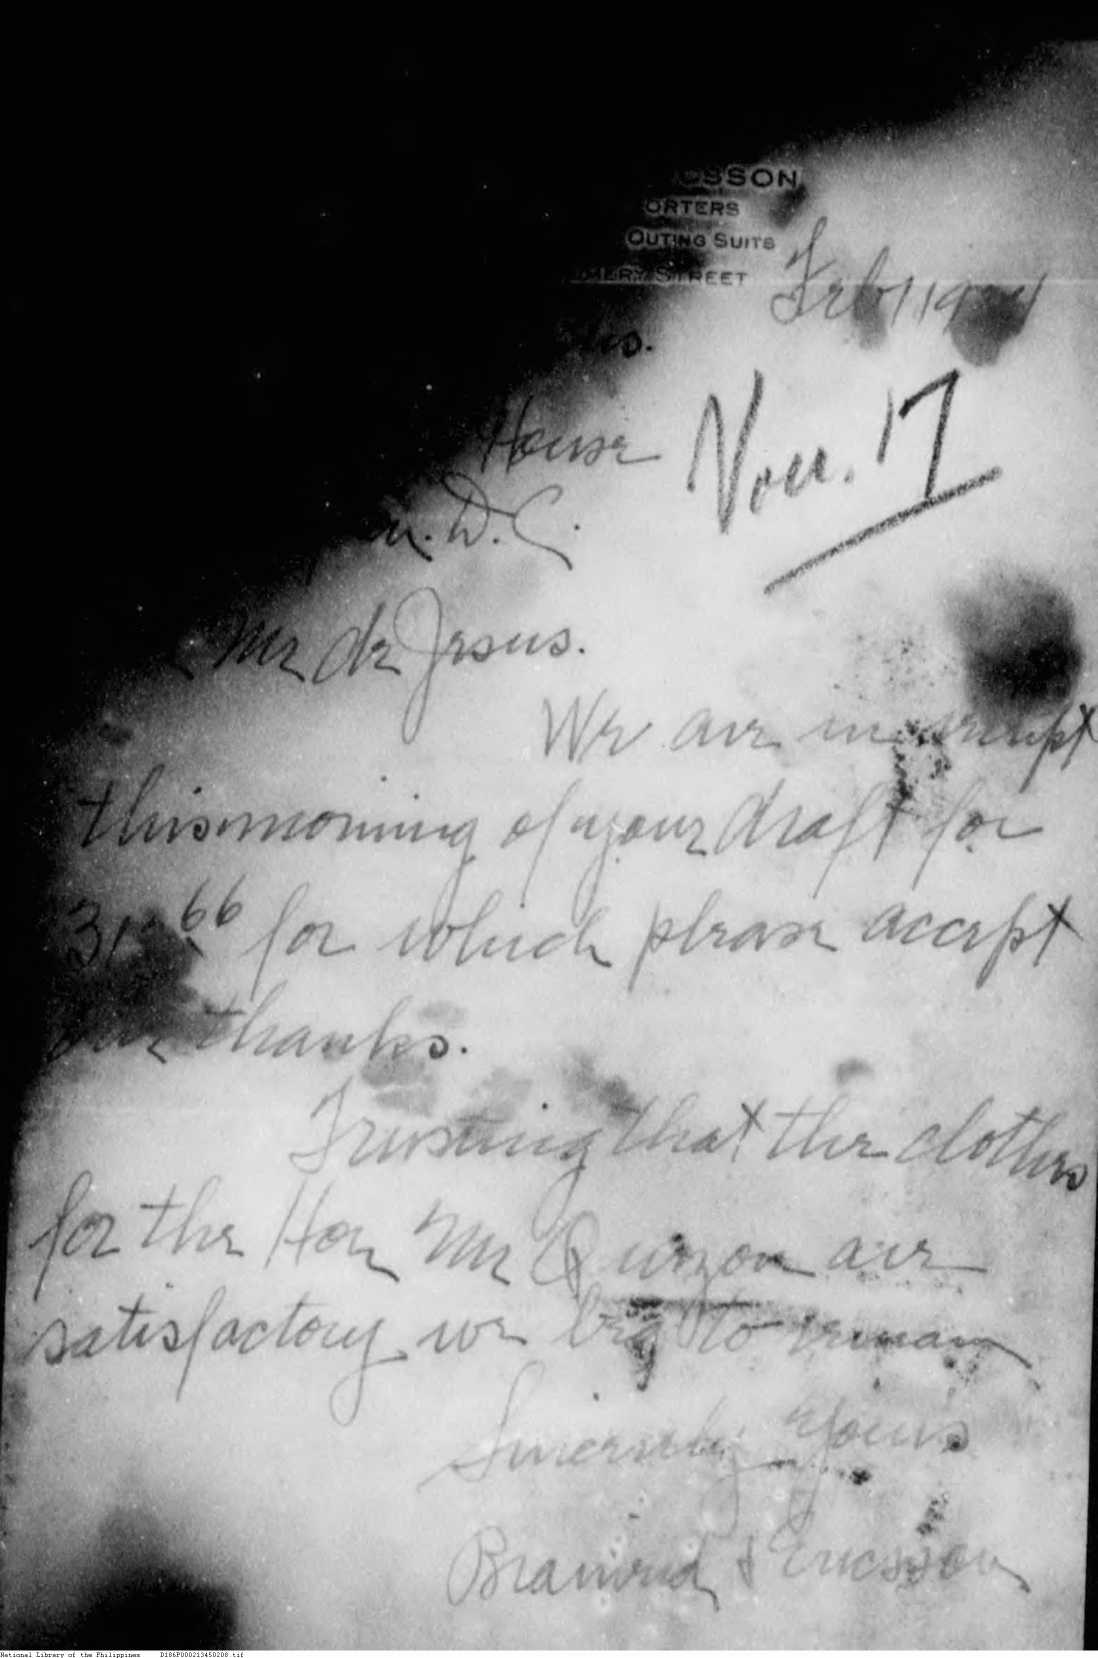 CSSON
ORTERS
OUTING SUITS
MERY STREET
Feb 1 19
House
D.C.
Nov. 17
Mr de Jesus.
We are in receipt
this morning of your draft for
66 for which please accept
our thanks.
Trusting that the clothes
for the Hon Mr Quezon are
satisfactory we beg to remain
Sincerely Yours
& Ericsson
National Library of the Philippines D186P000213450208.tif